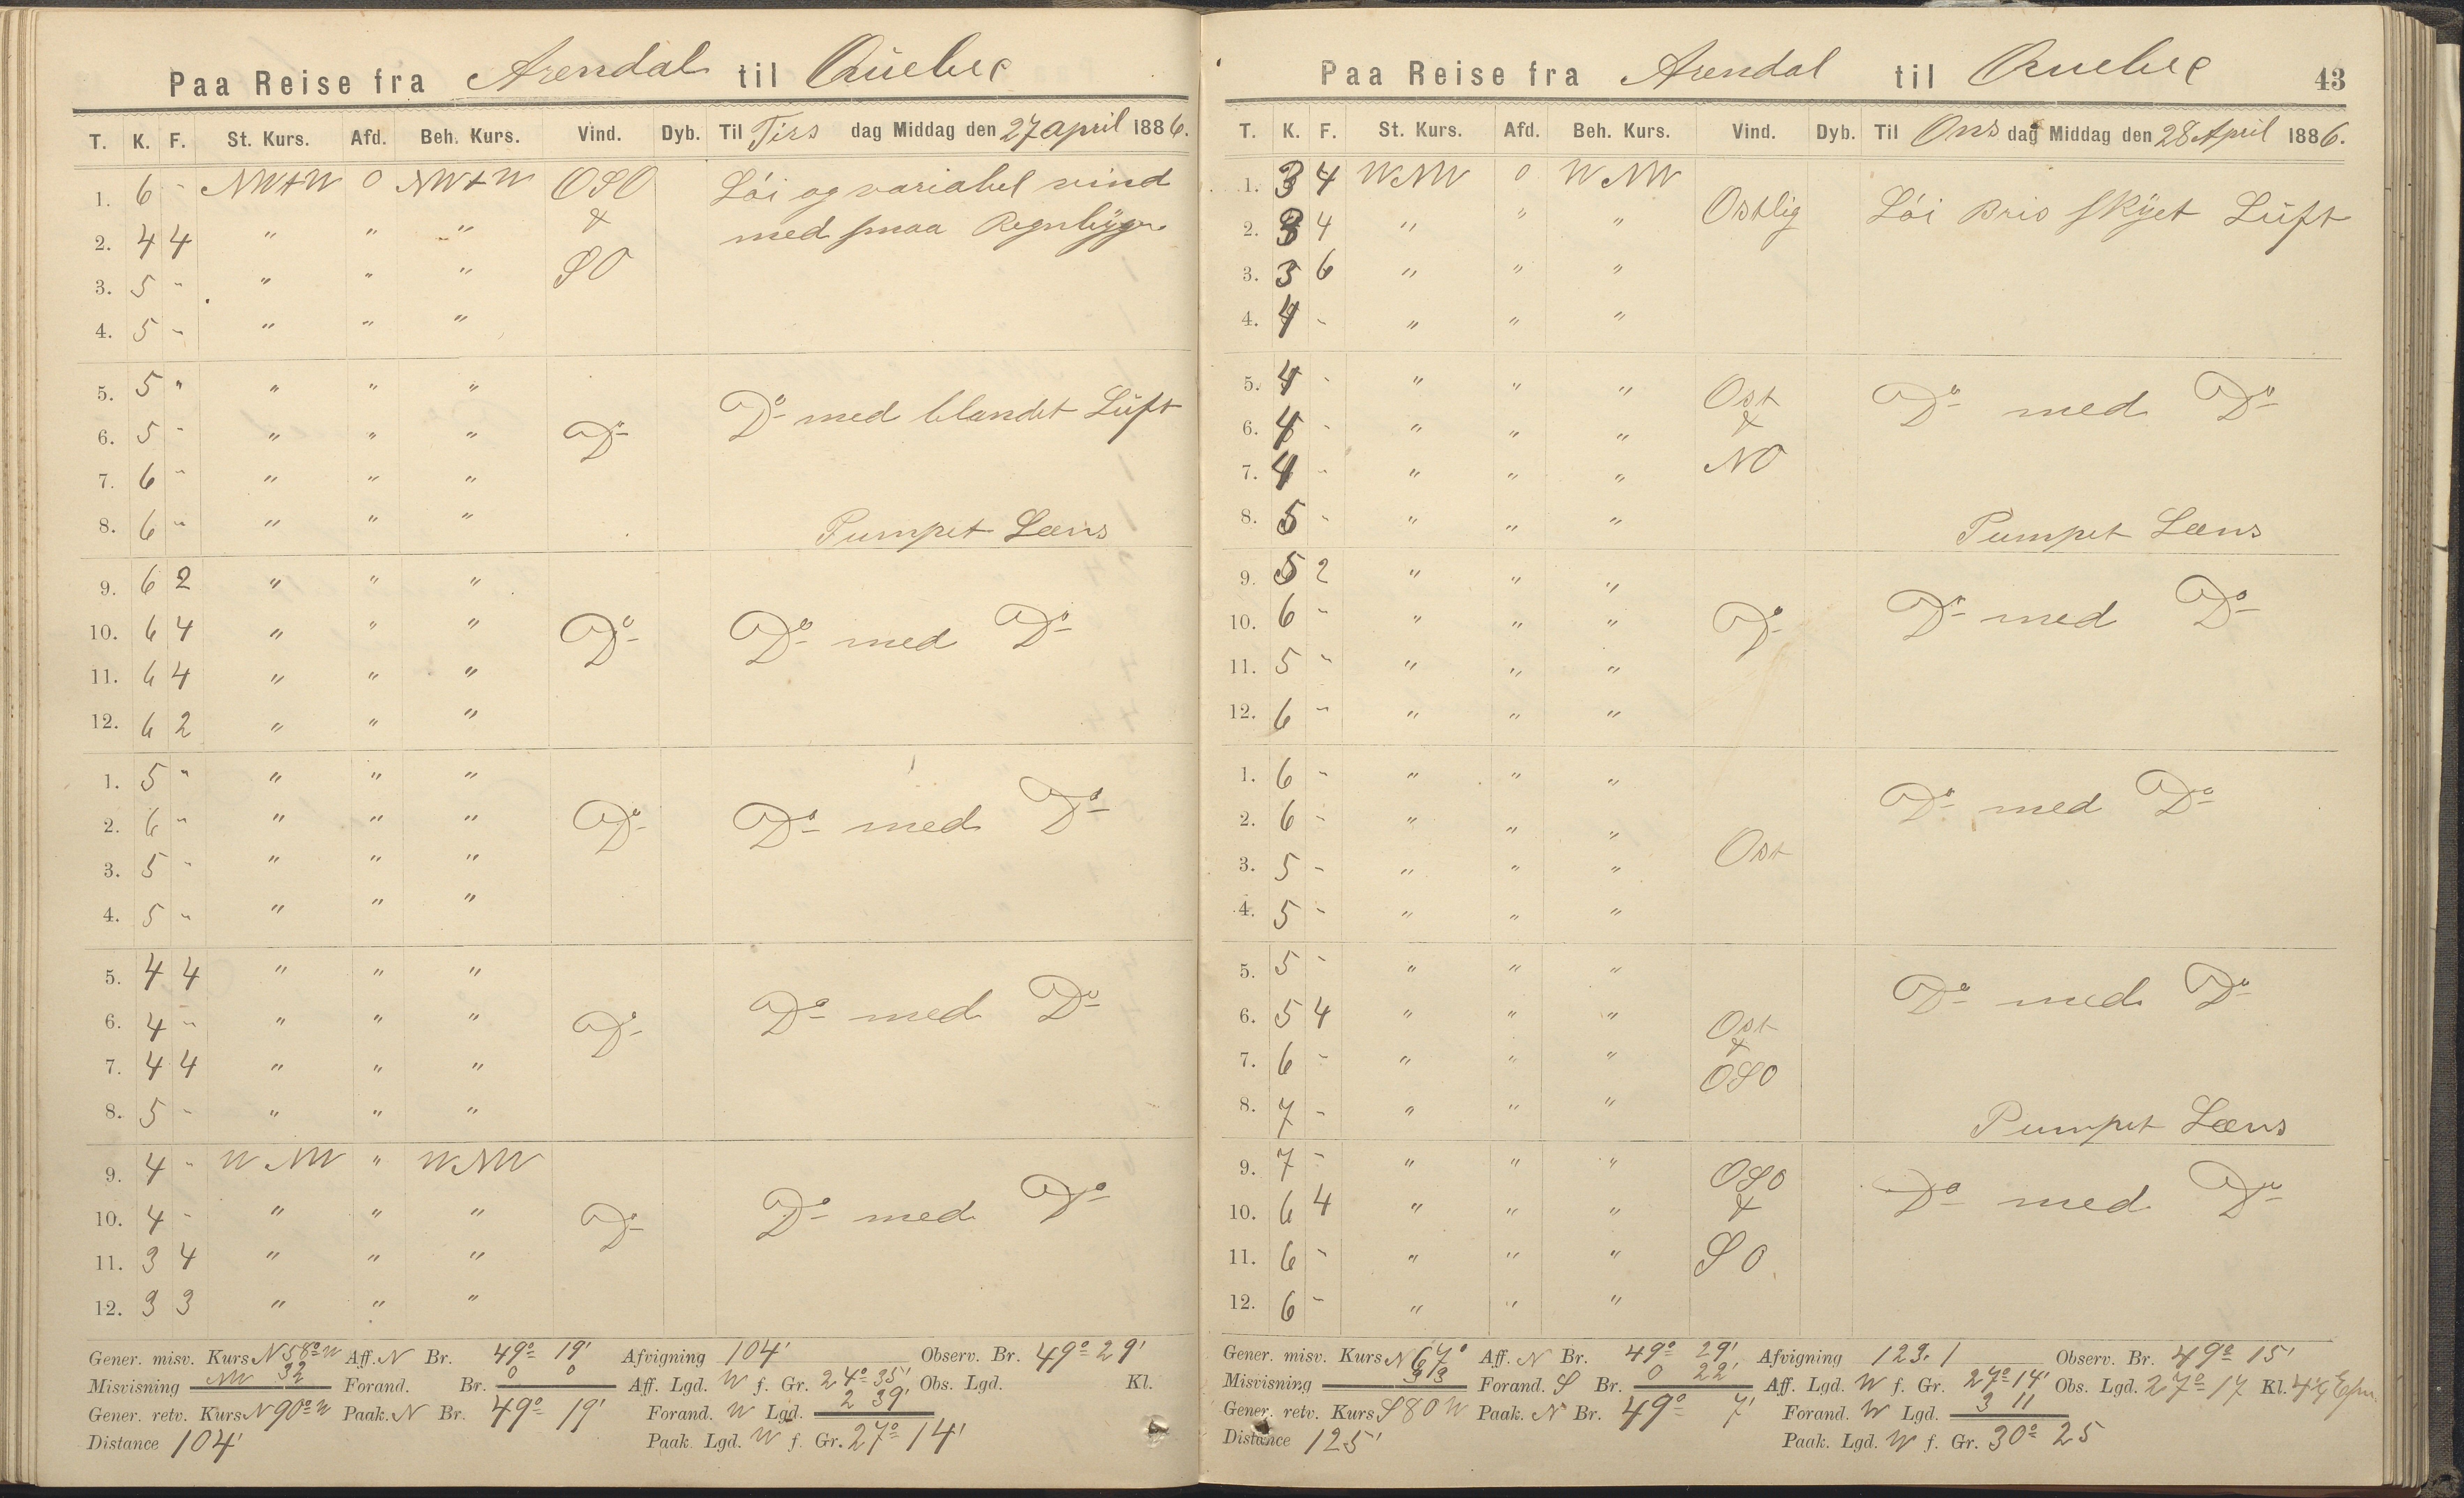 Paa Reise fra Arendal til Quebec
T. K. F. St. Kurs. Afd. Beh. Kurs. Vind. Dyb. Til Tirs dag Middag den 27 april 1886.
1. 6 - NW+W 0 NW+W OSO Löi og variabel vind
2. 4 4 " " " & med smaa Regnbyger
3. 5 - " " " SO
4. 5 - " " "
5. 5 " " " " Do med blandet Lüft
6. 5 - " " " Do
7. 6 - " " "
8. 6 - " " " Pumpet Læns
9. 6 2 " " "
10. 6 4 " " " Do Do med Do
11. 6 4 " " "
12. 6 2 " " "
1. 5 " " " "
2. 6 - " " " Do Do med Do
3. 5 - " " "
4. 5 - " " "
5. 4 4 " " "
6. 4 - " " " Do Do med Do
7. 4 4 " " "
8. 5 - " " "
9. 4 - WNW " WNW
10. 4 - " " " Do Do med Do
11. 3 4 " " "
12. 3 3 " " "
Gener. misv. Kurs N 58° W Aff. N Br. 49° 19' Afvigning 104' Observ. Br. 49° 29'
Misvisning 32 Forand. Br. 0 0 Aff. Lgd. W f. Gr. 24° 35' Obs. Lgd. Kl.
Gener. retv. Kurs N 90° W Paak. N Br. 49° 19' Forand. W Lgd. 2 39'
Distance 104' Paak. Lgd. W f. Gr. 27° 14'
Paa Reise fra Arendal til Quebec 43
T. K. F. St. Kurs. Afd. Beh. Kurs. Vind. Dyb. Til Ons dag Middag den 28 April 1886.
1. 3 4 WNW 0 WNW
2. 3 4 " " " Ostlig Löi Bris skyet Lüft
3. 3 6 " " "
4. 4 - " " "
5. 4 - " " " Ost Do med Do
6. 4 - " " " &
7. 4 - " " " NO
8. 5 - " " " Pumpet Læns
9. 5 2 " " "
10. 6 - " " " Do Do med Do
11. 5 - " " "
12. 6 - " " "
1. 6 - " " " Do med Do
2. 6 - " " "
3. 5 - " " " Ost
4. 5 - " " "
5. 5 - " " " Do med Do
6. 5 4 " " " Ost
7. 6 - " " " & OSO
8. 7 - " " " Pumpet Læns
9. 7 - " " " OSO Do med Do
10. 6 4 " " " &
11. 6 - " " " SO
12. 6 - " " "
Gener. misv. Kurs N 67° Aff. N Br. 49° 29' Afvigning 123.1 Observ. Br. 49° 15'
Misvisning 33 Forand. S Br. 0 22' Aff. Lgd. W f. Gr. 27° 14' Obs. Lgd. 27° 17 Kl. 4
Gener. retv. Kurs S 80 W Paak. N Br. 49° 7' Forand. W Lgd. 3 11
Distance 125' Paak. Lgd. W f. Gr. 30° 25